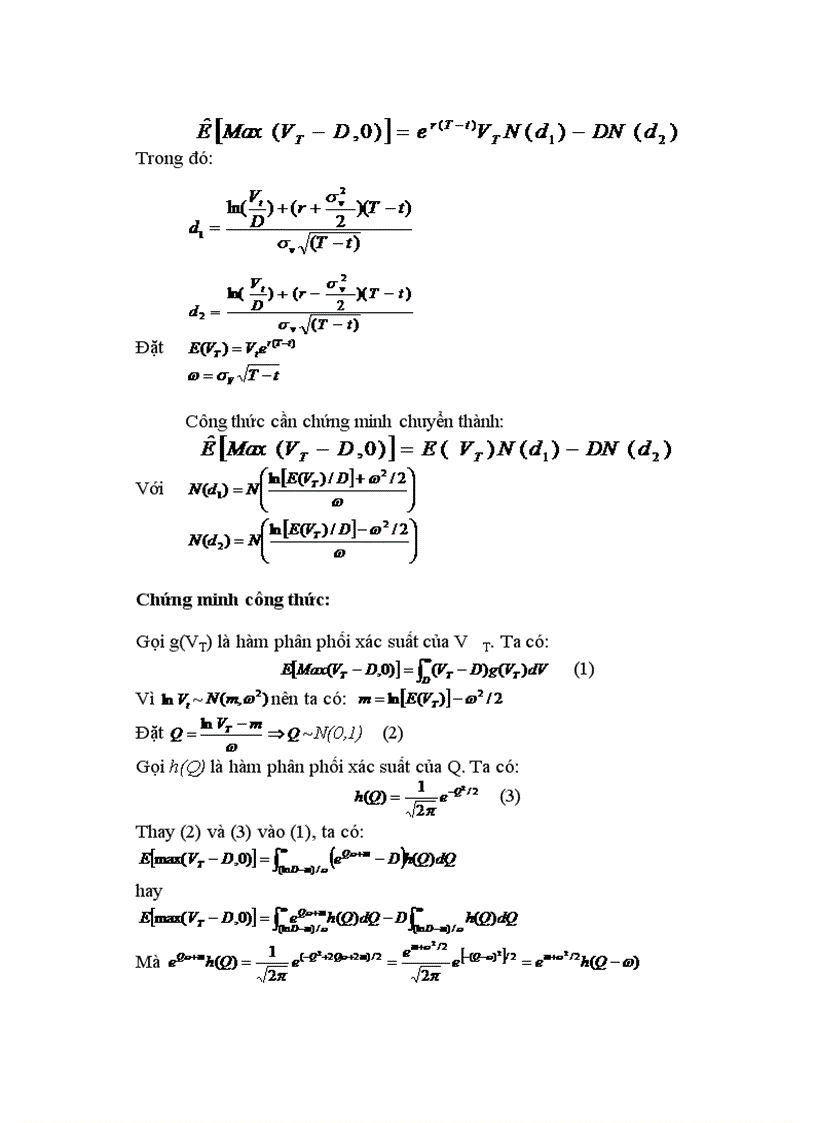 Ê[Max (V_T − D,0)] = e^{r(T−t)}V_T N(d_1) − DN (d_2)
Trong đó:
d_1 = \frac{ln(\frac{V_t}{D}) + (r + \frac{σ_v^2}{2})(T − t)}{σ_v√(T − t)}
d_2 = \frac{ln(\frac{V_t}{D}) + (r − \frac{σ_v^2}{2})(T − t)}{σ_v√(T − t)}
Đặt E(V_T) = V_t e^{r(T−t)}
ω = σ_V√T − t
Công thức cần chứng minh chuyển thành:
Ê[Max (V_T − D,0)] = E( V_T)N(d_1) − DN (d_2)
Với N(d_1) = N(\frac{ln[E(V_T)/D] + ω^2/2}{ω})
N(d_2) = N(\frac{ln[E(V_T)/D] − ω^2/2}{ω})
Chứng minh công thức:
Gọi g(V_T) là hàm phân phối xác suất của V _T. Ta có:
E[Max(V_T − D,0)] = ∫_D^∞(V_T − D)g(V_T)dV (1)
Vì ln V_t ~ N(m,ω^2) nên ta có: m = ln[E(V_T)] − ω^2/2
Đặt Q = \frac{ln V_T − m}{ω} ⇒ Q ~N(0,1) (2)
Gọi h(Q) là hàm phân phối xác suất của Q. Ta có:
h(Q) = \frac{1}{√2π} e^{−Q^2/2} (3)
Thay (2) và (3) vào (1), ta có:
E[max(V_T − D,0)] = ∫_{(lnD−m)/ω}^∞(e^{Qω+m} − D)h(Q)dQ
hay
E[max(V_T − D,0)] = ∫_{(lnD−m)/ω}^∞ e^{Qω+m}h(Q)dQ − D∫_{(lnD−m)/ω}^∞ h(Q)dQ
Mà e^{Qω+m}h(Q) = \frac{1}{√2π} e^{(−Q^2+2Qω+2m)/2} = \frac{e^{m+ω^2/2}}{√2π} e^{[−(Q−ω)^2]/2} = e^{m+ω^2/2}h(Q − ω)